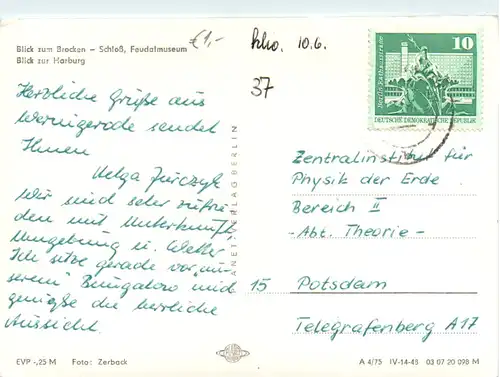 Blick zum Brocken – Schloß, Feudalmuseum
Blick zur Harburg
€1,-
10.6.
37
10
Berlin, Rathausstraße
DEUTSCHE DEMOKRATISCHE REPUBLIK
Herzliche Grüße aus
Wernigerode sendet
Ihnen
Helga Jurczyk
Wir sind sehr zufrie-
den mit Unterkunft
Umgebung u. Wetter
Ich sitze gerade vor un-
serem Bungalow und
genieße die herrliche
Aussicht.
PLANET-VERLAG BERLIN
Zentralinstitut für
Physik der Erde
Bereich II
- Abt. Theorie -
15 Potsdam
Telegrafenberg A17
EVP -,25 M Foto: Zerback
A 4/75 IV-14-48 03 07 20 098 M